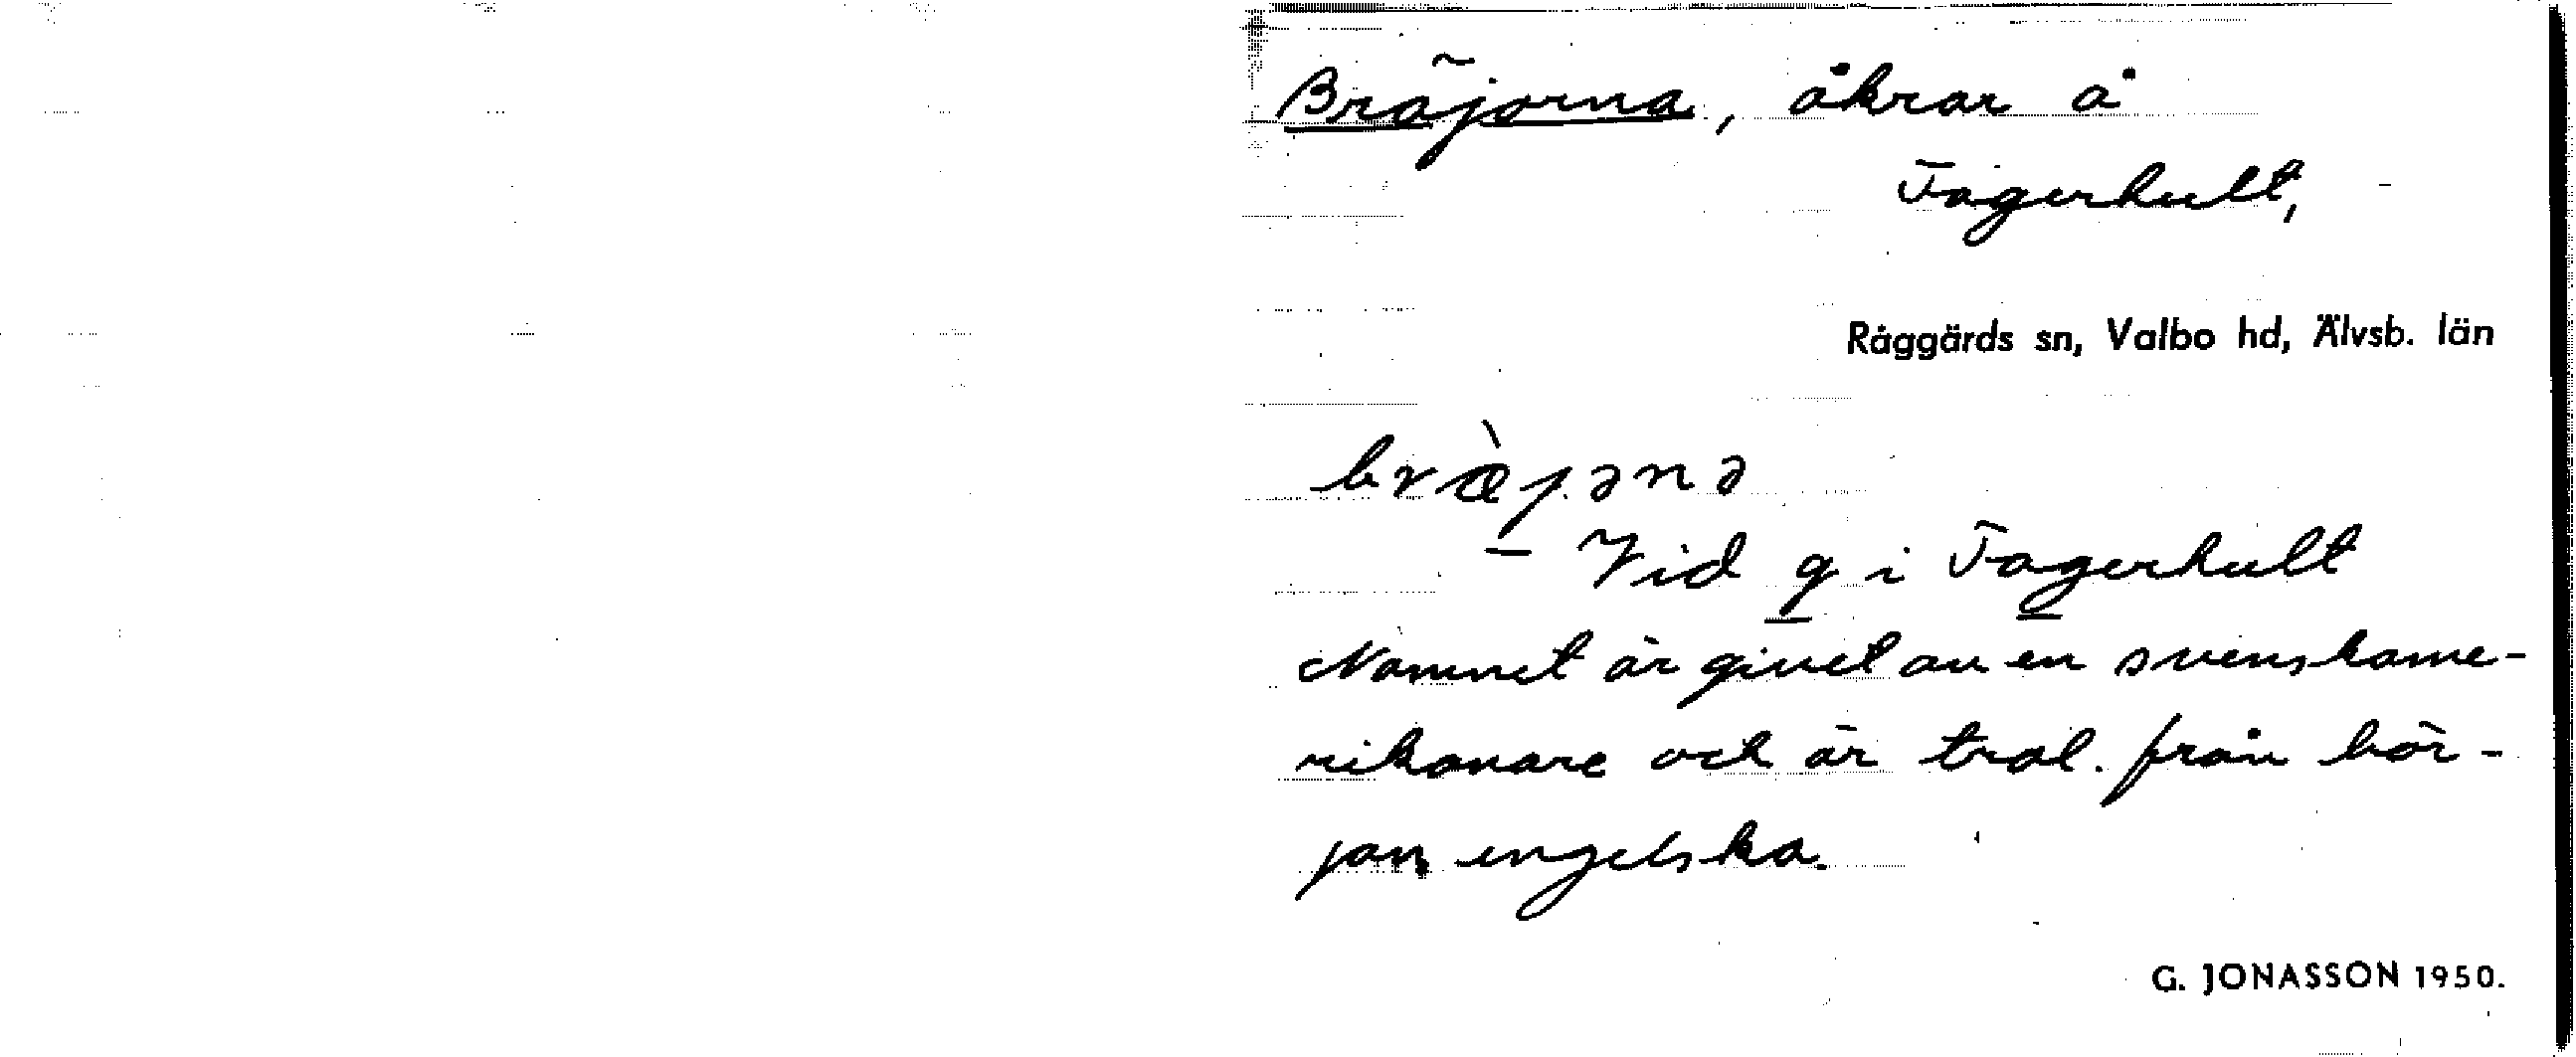 Bräjorna, åkrar å
Fagerhult,
Råggärds sn, Valbo hd, Älvsb. län
bræ̀jənə
– Vid g i Fagerhult
Namnet är givet av en svenskame-
rikanare och är trol. från bör-
jan engelska.
G. JONASSON 1950.